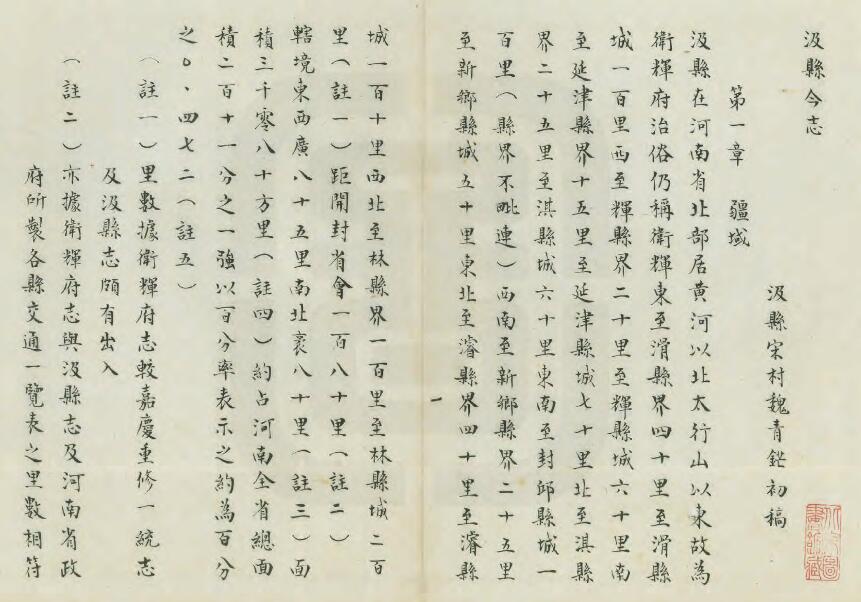 汲縣今志
汲縣宋村魏青鋩初稿
第一章 疆域
汲縣在河南省北部居黃河以北太行山以東故為
衛輝府治俗仍稱衛輝東至滑縣界四十里至滑縣
城一百里西至輝縣界二十里至輝縣城六十里南
至延津縣界十五里至延津縣城七十里北至淇縣
界二十五里至淇縣城六十里東南至封邱縣城一
百里(縣界不毗連)西南至新鄉縣界二十五里
至新鄉縣城五十里東北至濬縣界四十里至濬縣
一
城一百十里西北至林縣界一百里至林縣城二百
里(註一)距開封省會一百八十里(註二)
轄境東西廣八十五里南北袤八十里(註三)面
積三千零八十方里(註四)約占河南全省總面
積二百十一分之一強以百分率表示之約為百分
之〇、四七二(註五)
(註一)里數據衛輝府志較嘉慶重修一統志
及汲縣志頗有出入
(註二)亦據衛輝府志與汲縣志及河南省政
府所製各縣交通一覽表之里數相符